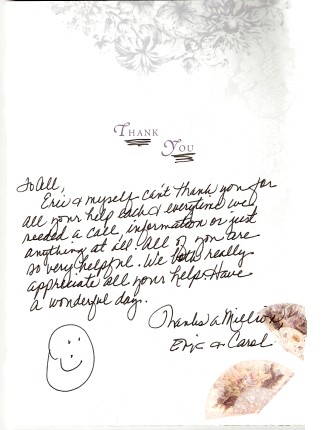 THANK
YOU
To All,
Eric & myself can't thank you for
all your help each & everytime we
needed a call, information or just
anything at all. All of you are
so very helpful. We both really
appreciate all your help. Have
a wonderful day.
Thanks a Million,
Eric & Carol